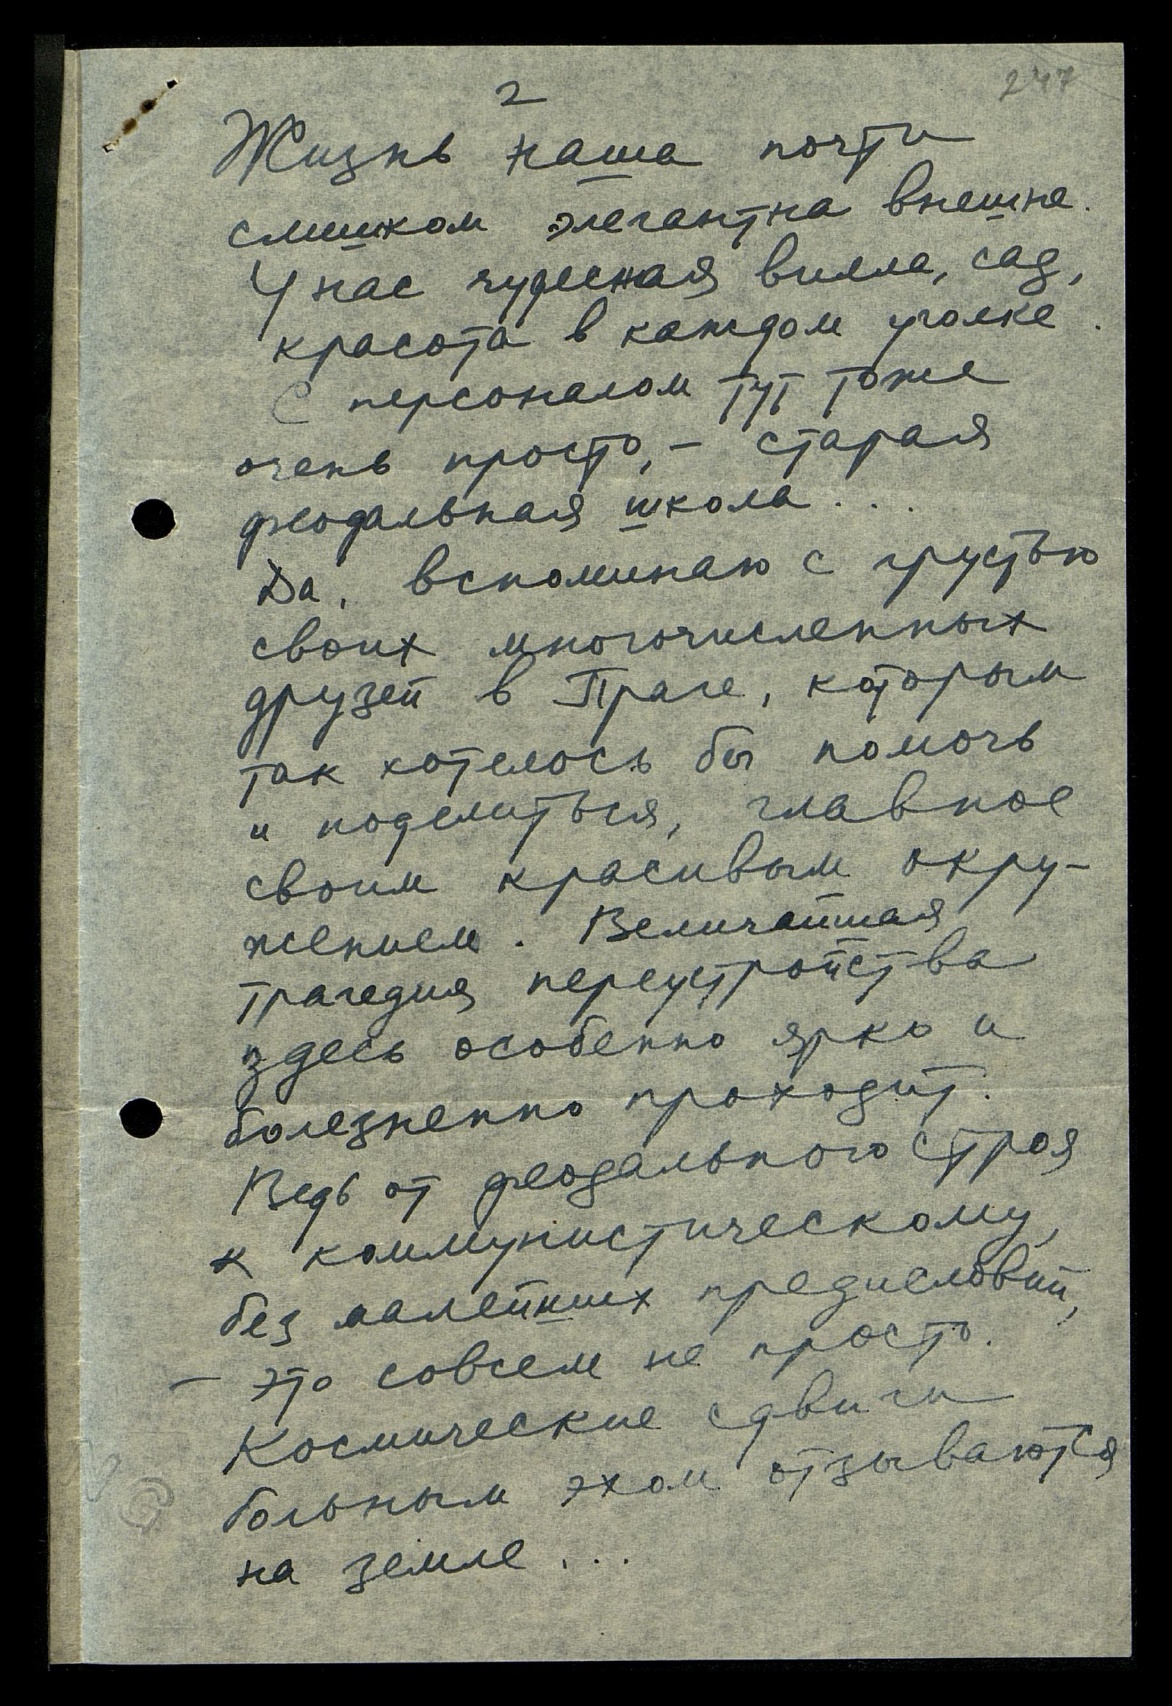 2
247
Жизнь наша почти
слишком элегантна внешне.
У нас чудесная вилла, сад,
красота в каждом уголке.
С персоналом тут тоже
очень просто, – старая
феодальная школа...
Да, вспоминаю с грустью
своих многочисленных
друзей в Праге, которым
так хотелось бы помочь
и поделиться, главное
своим красивым окру-
жением. Величайшая
трагедия переустройства
здесь особенно ярко и
болезненно проходит.
Ведь от феодального строя
к коммунистическому,
без малейших предисловий,
– это совсем не просто.
Космические сдвиги
больным эхом отзываются
на земле...